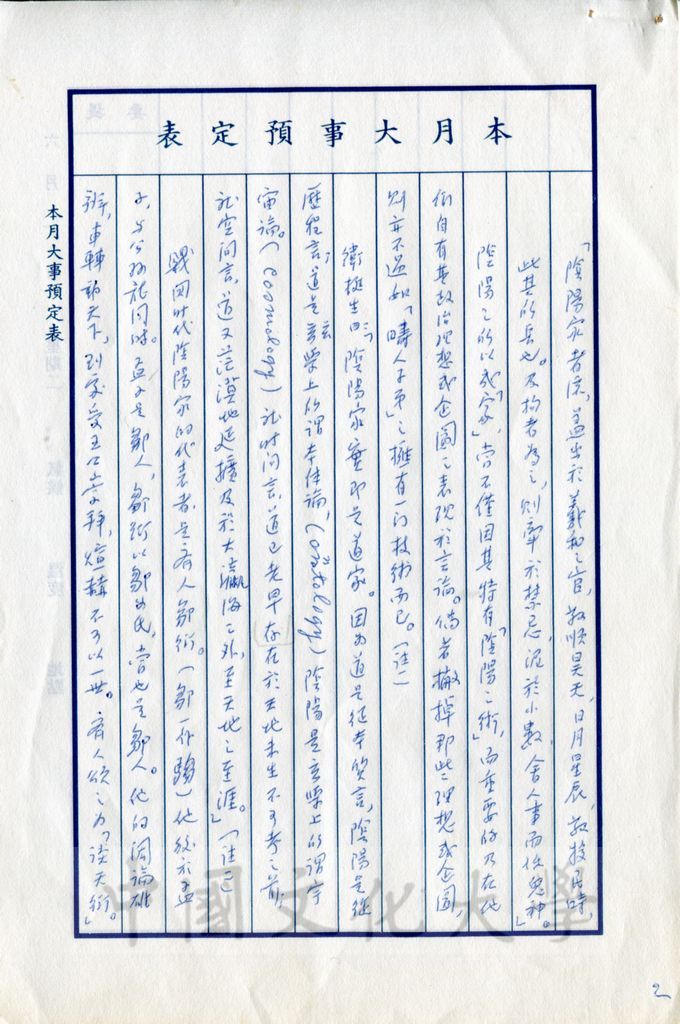 本月大事預定表
「陰陽家者流，蓋出於羲和之官，敬順昊天，日月星辰，敬授民時，
此其所長也。及拘者為之，則牽於禁忌，泥於小數，舍人事而任鬼神。」
陰陽之所以成「家」，當不僅因其特有「陰陽之術」，而重要的乃在他
們自有其政治理想或企圖之表現於言論。倘若撇掉那些理想或企圖，
則亦不過如「疇人子弟」之擁有一门技術而已。（註一
衛挺生曰：「陰陽家實即是道家。因为道是從本質言，陰陽是從
歷程言，道是玄學上所謂本体論，(ontology) 陰陽是玄學上所謂宇
宙論。(cosmology) 就时间言，道已老早存在於天地未生不可考之前，
就空间言，道又茫漠地延擴及於大瀛海之外，至天地之至涯。」（註二
戰囯时代陰陽家的代表者是齊人鄒衍。（鄒一作騶）他後於孟
子，与公孫龍同時。孟子是鄒人，鄒衍以鄒为氏，當也是鄒人。他的闳論雄
辯，車轉動天下，到處受王公崇拜，煊赫不可以一世。齊人頌之为「談天衍」。
本月大事預定表
中國文化大學
2